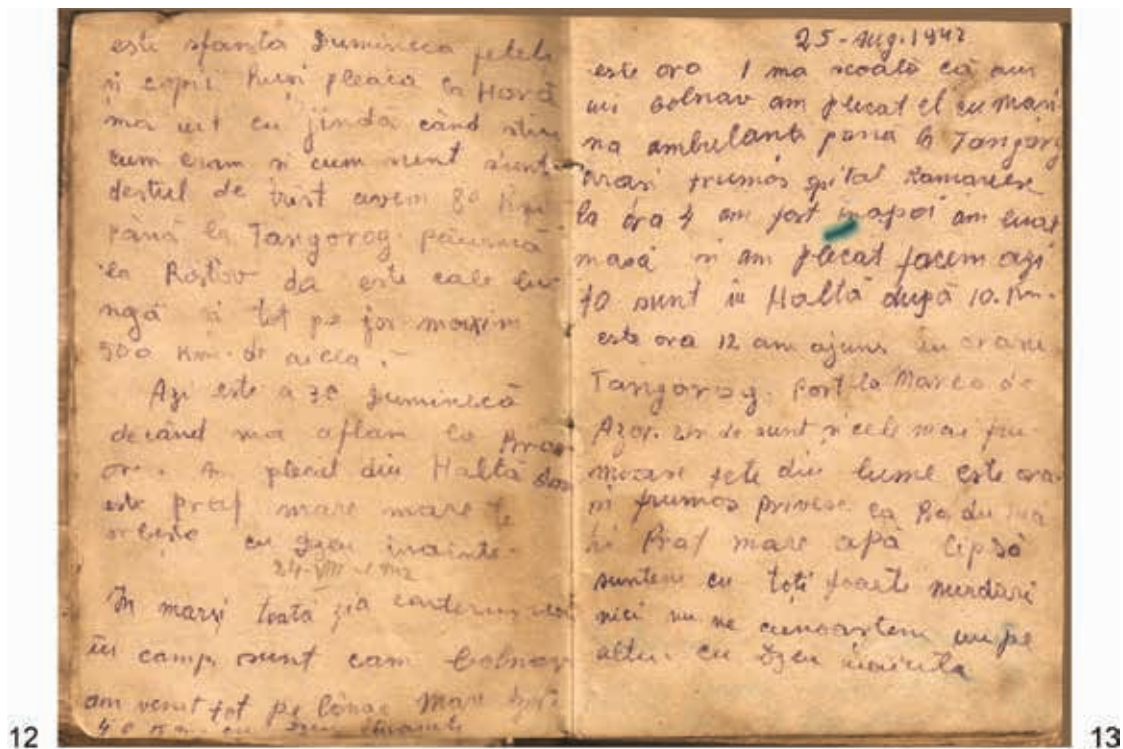 este sfanta Duminica fetele
si copii Rusi pleaca la Horă
ma uit cu jinda când
cum eram si cum sunt sunt
destul de trist avem 80 Km
până la Tangorog
la Rostov da este cale lun
gă si tot pe jos maxim
500 Km. de aicea.
Azi este a 3a Duminecă
decând ma aflam la
Am plecat din Haltă
este praf mare mare te
orbeste cu Dzeu inainte.
24-VIII-1942
În mars toată zia
în camp sunt cam bolnav
am venit tot pe mare
40 Km. cu Dzeu inainte
25-Aug. 1942
este ora 1 ma scoală că am
un bolnav am plecat cu el cu masi
na ambulanta pana la Tangorog
oras frumos spital Romanesc
la ora 4 am fost inapoi am luat
masă si am plecat facem azi
40 sunt in Haltă după 10. Km.
este ora 12 am ajuns in orasu
Tangorog. Port la Marea de
Azov. unde sunt si cele mai fru
moase fete din lume este ora
s frumos privesc ca
Praf mare apă lipsă
suntem cu toti foarte murdari
nici nu ne cunoastem unu pe
altu. cu Dzeu inainte
12
13